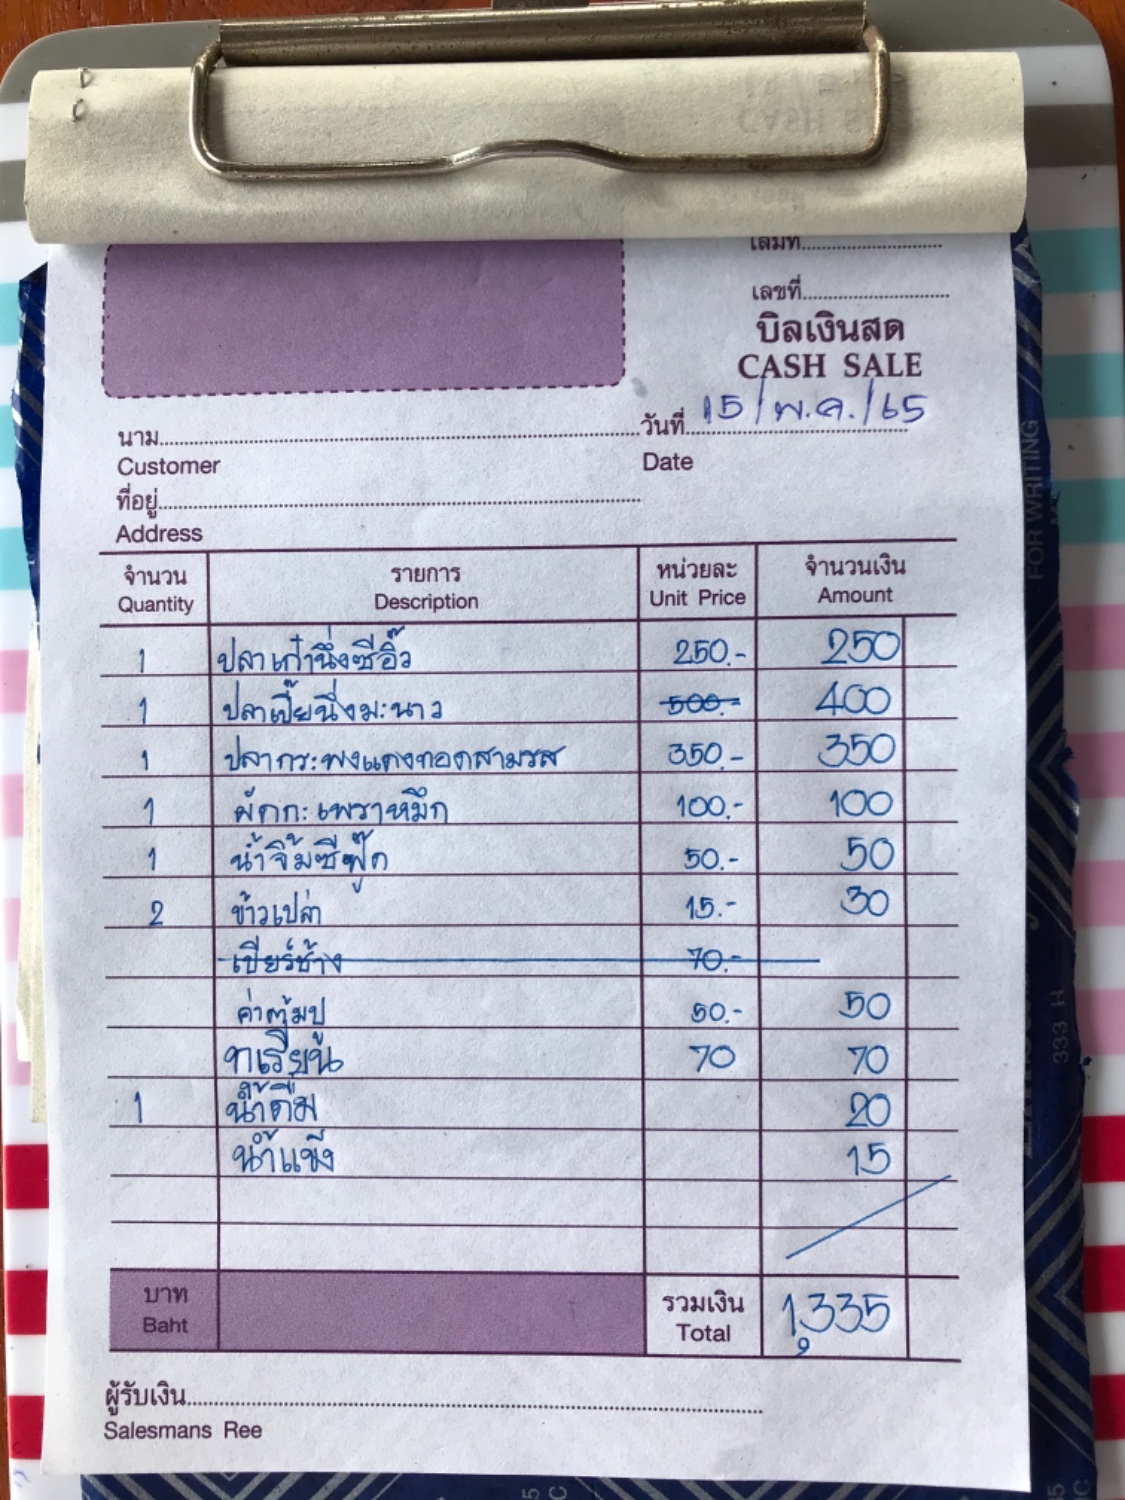 เล่มที่
เลขที่
บิลเงินสด
CASH SALE
นาม วันที่ 15/พ.ค./65
Customer Date
ที่อยู่
Address
จำนวน รายการ หน่วยละ จำนวนเงิน
Quantity Description Unit Price Amount
1 ปลาเก๋านึ่งซีอิ๊ว 250.- 250
1 ปลาเปี๊ยนึ่งมะนาว 500.- 400
1 ปลากระพงแดงทอดสามรส 350.- 350
1 ผัดกะเพราหมึก 100.- 100
1 น้ำจิ้มซีฟู๊ด 50.- 50
2 ข้าวเปล่า 15.- 30
เบียร์ช้าง 70.-
ค่าต้มปู 50.- 50
ทเรียน 70 70
1 น้ำดื่ม 20
น้ำแข็ง 15
บาท รวมเงิน 1,335
Baht Total
ผู้รับเงิน
Salesmans Ree
FOR WRITING
333 H